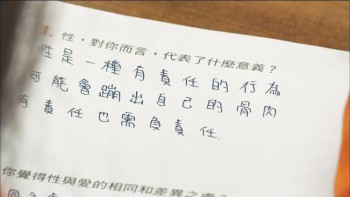 1. 性，對你而言，代表了什麼意義？
性是一種有責任的行為
可能會蹦出自己的骨肉
有責任也需負責任.
你覺得性與愛的相同和差異之處？